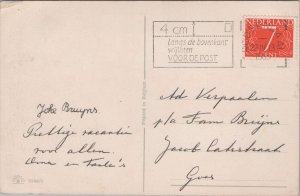 4 cm
langs de bovenkant
vrijlaten
VOOR DE POST
NEDERLAND
7
Joke Bruyns.
Prettige vacantie
voor allen.
Oma en tante's
Ad Verpaalen
p/a Fam Bruijns
Jacob Catsstraat
Goes
Printed in Belgium